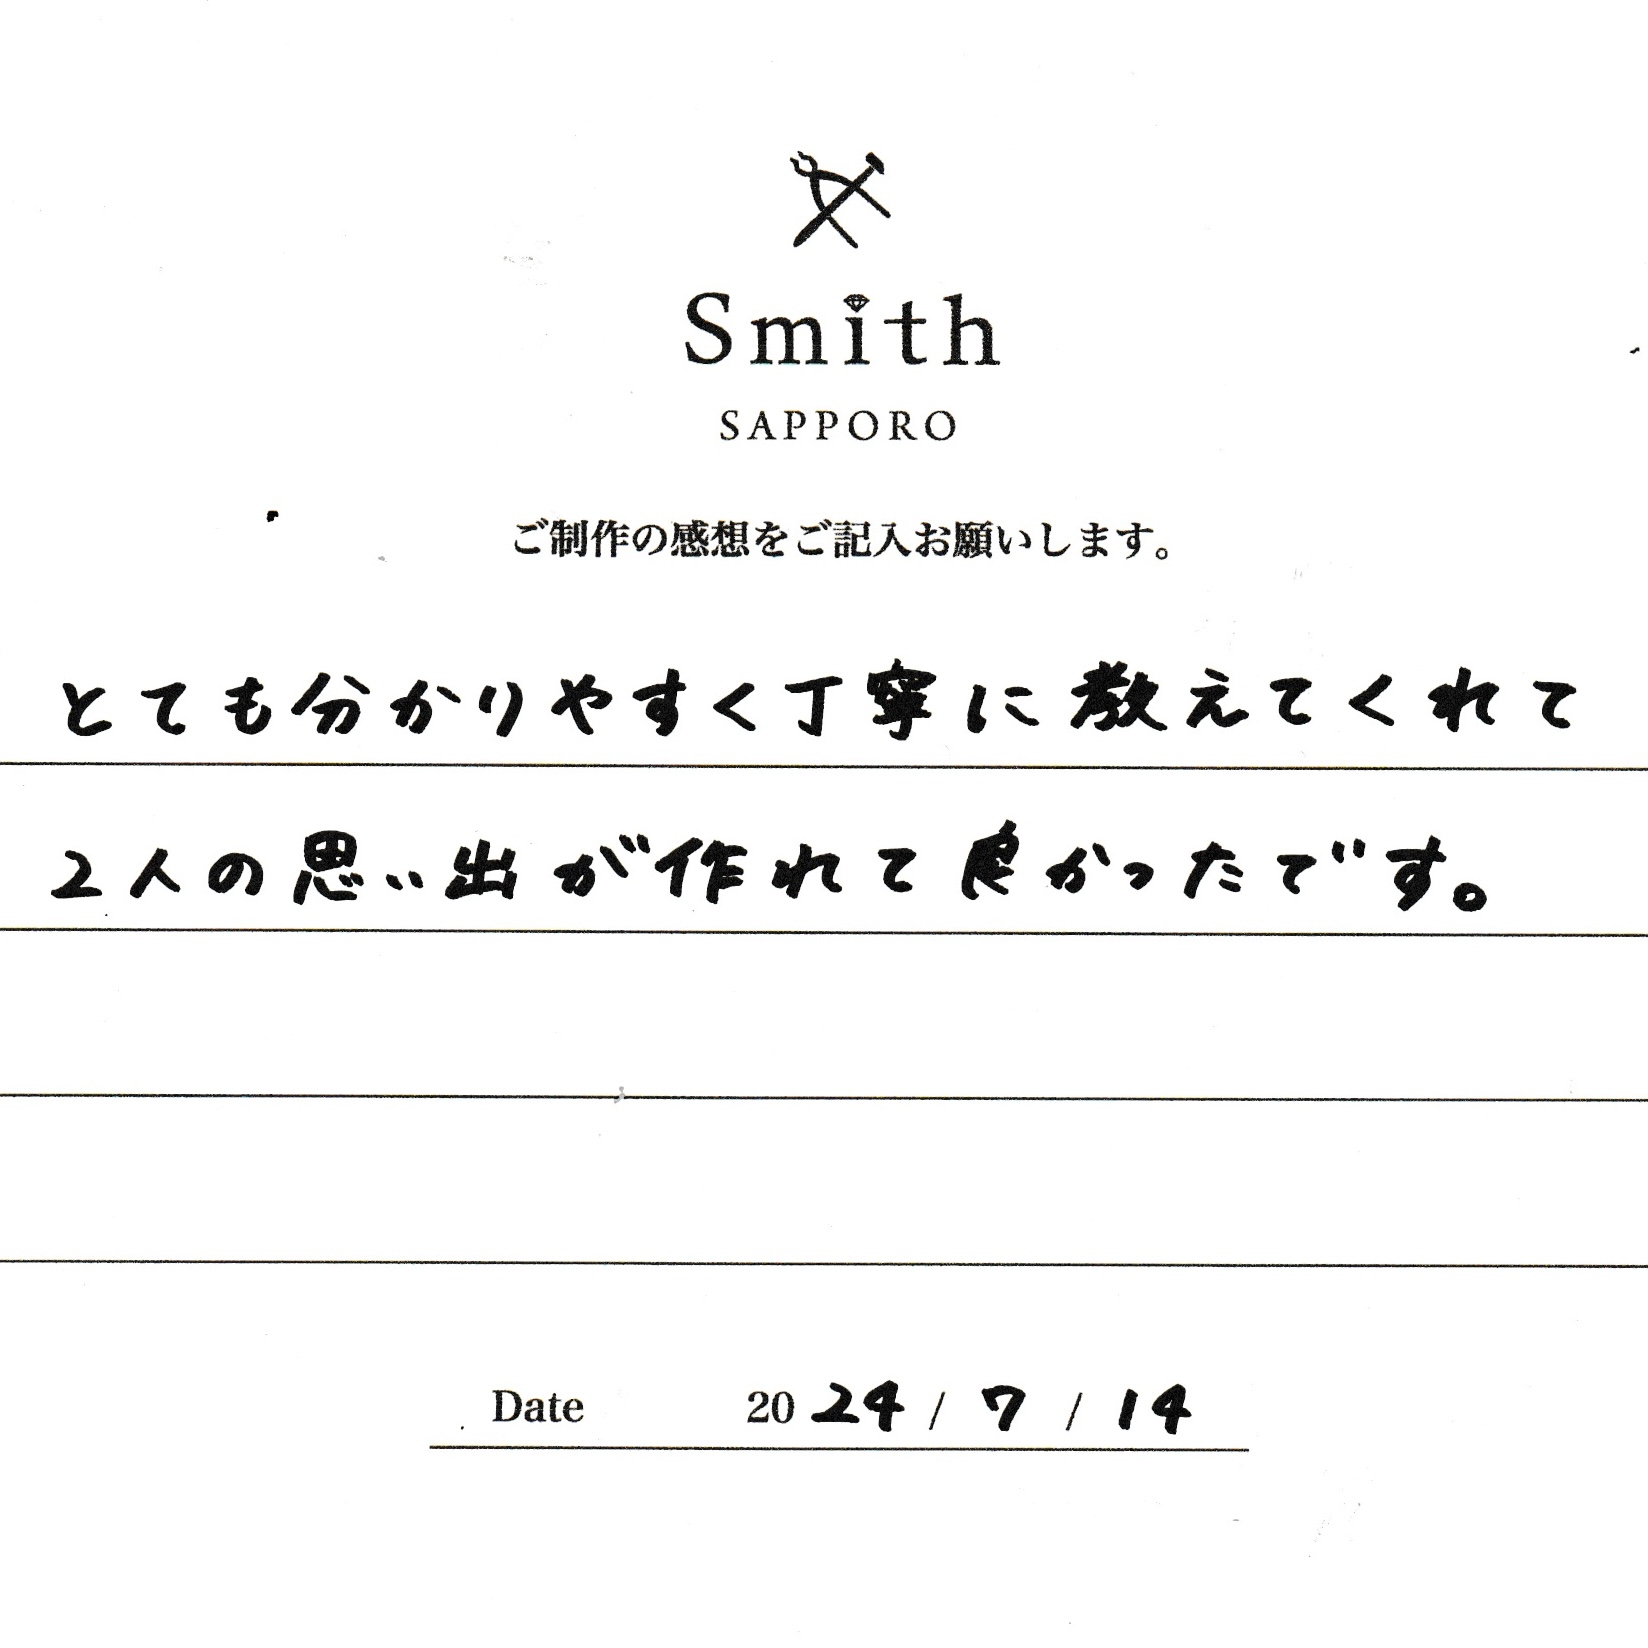 Smith
SAPPORO
ご制作の感想をご記入お願いします。
とても分かりやすく丁寧に教えてくれて
2人の思い出が作れて良かったです。
Date 2024 / 7 / 14